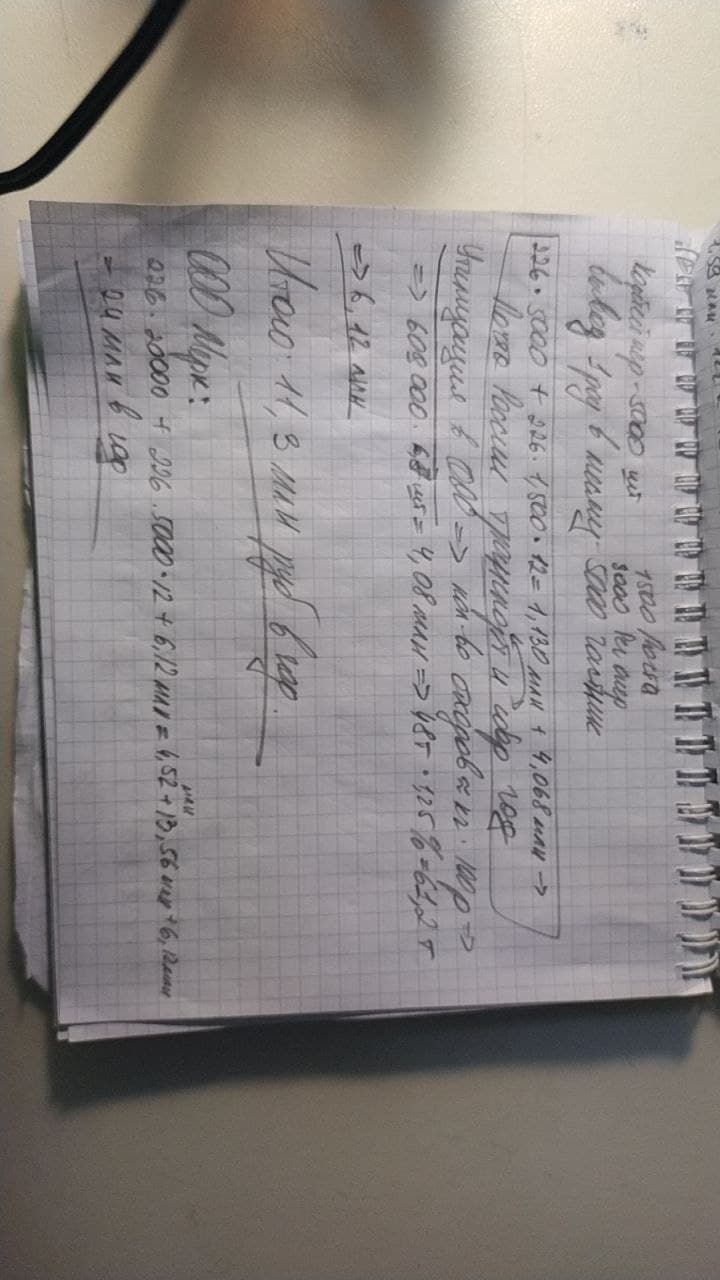 1,59 млн.
Контейнер - 5000 шт 1500 Почта
3000 Рег опер
вывоз 1 раз в месяц 5000 частник
226 · 5000 + 226 · 1,500 · 12 = 1,130 млн + 4,068 млн →
Почта России транспорт и сбор год
Утилизация в ООО => кол-во отходов ≈ кг · 100 р =>
=> 609000 · шт = 4,08 млн => 48т · 1,25 % = 61,2 т
=> 6,12 млн
Итого: 11,3 млн руб в год.
ООО Мерк:
226 · 20000 + 226 · 5000 · 12 + 6,12 млн = 4,52 млн + 13,56 млн + 6,12 млн
= 24 млн в год